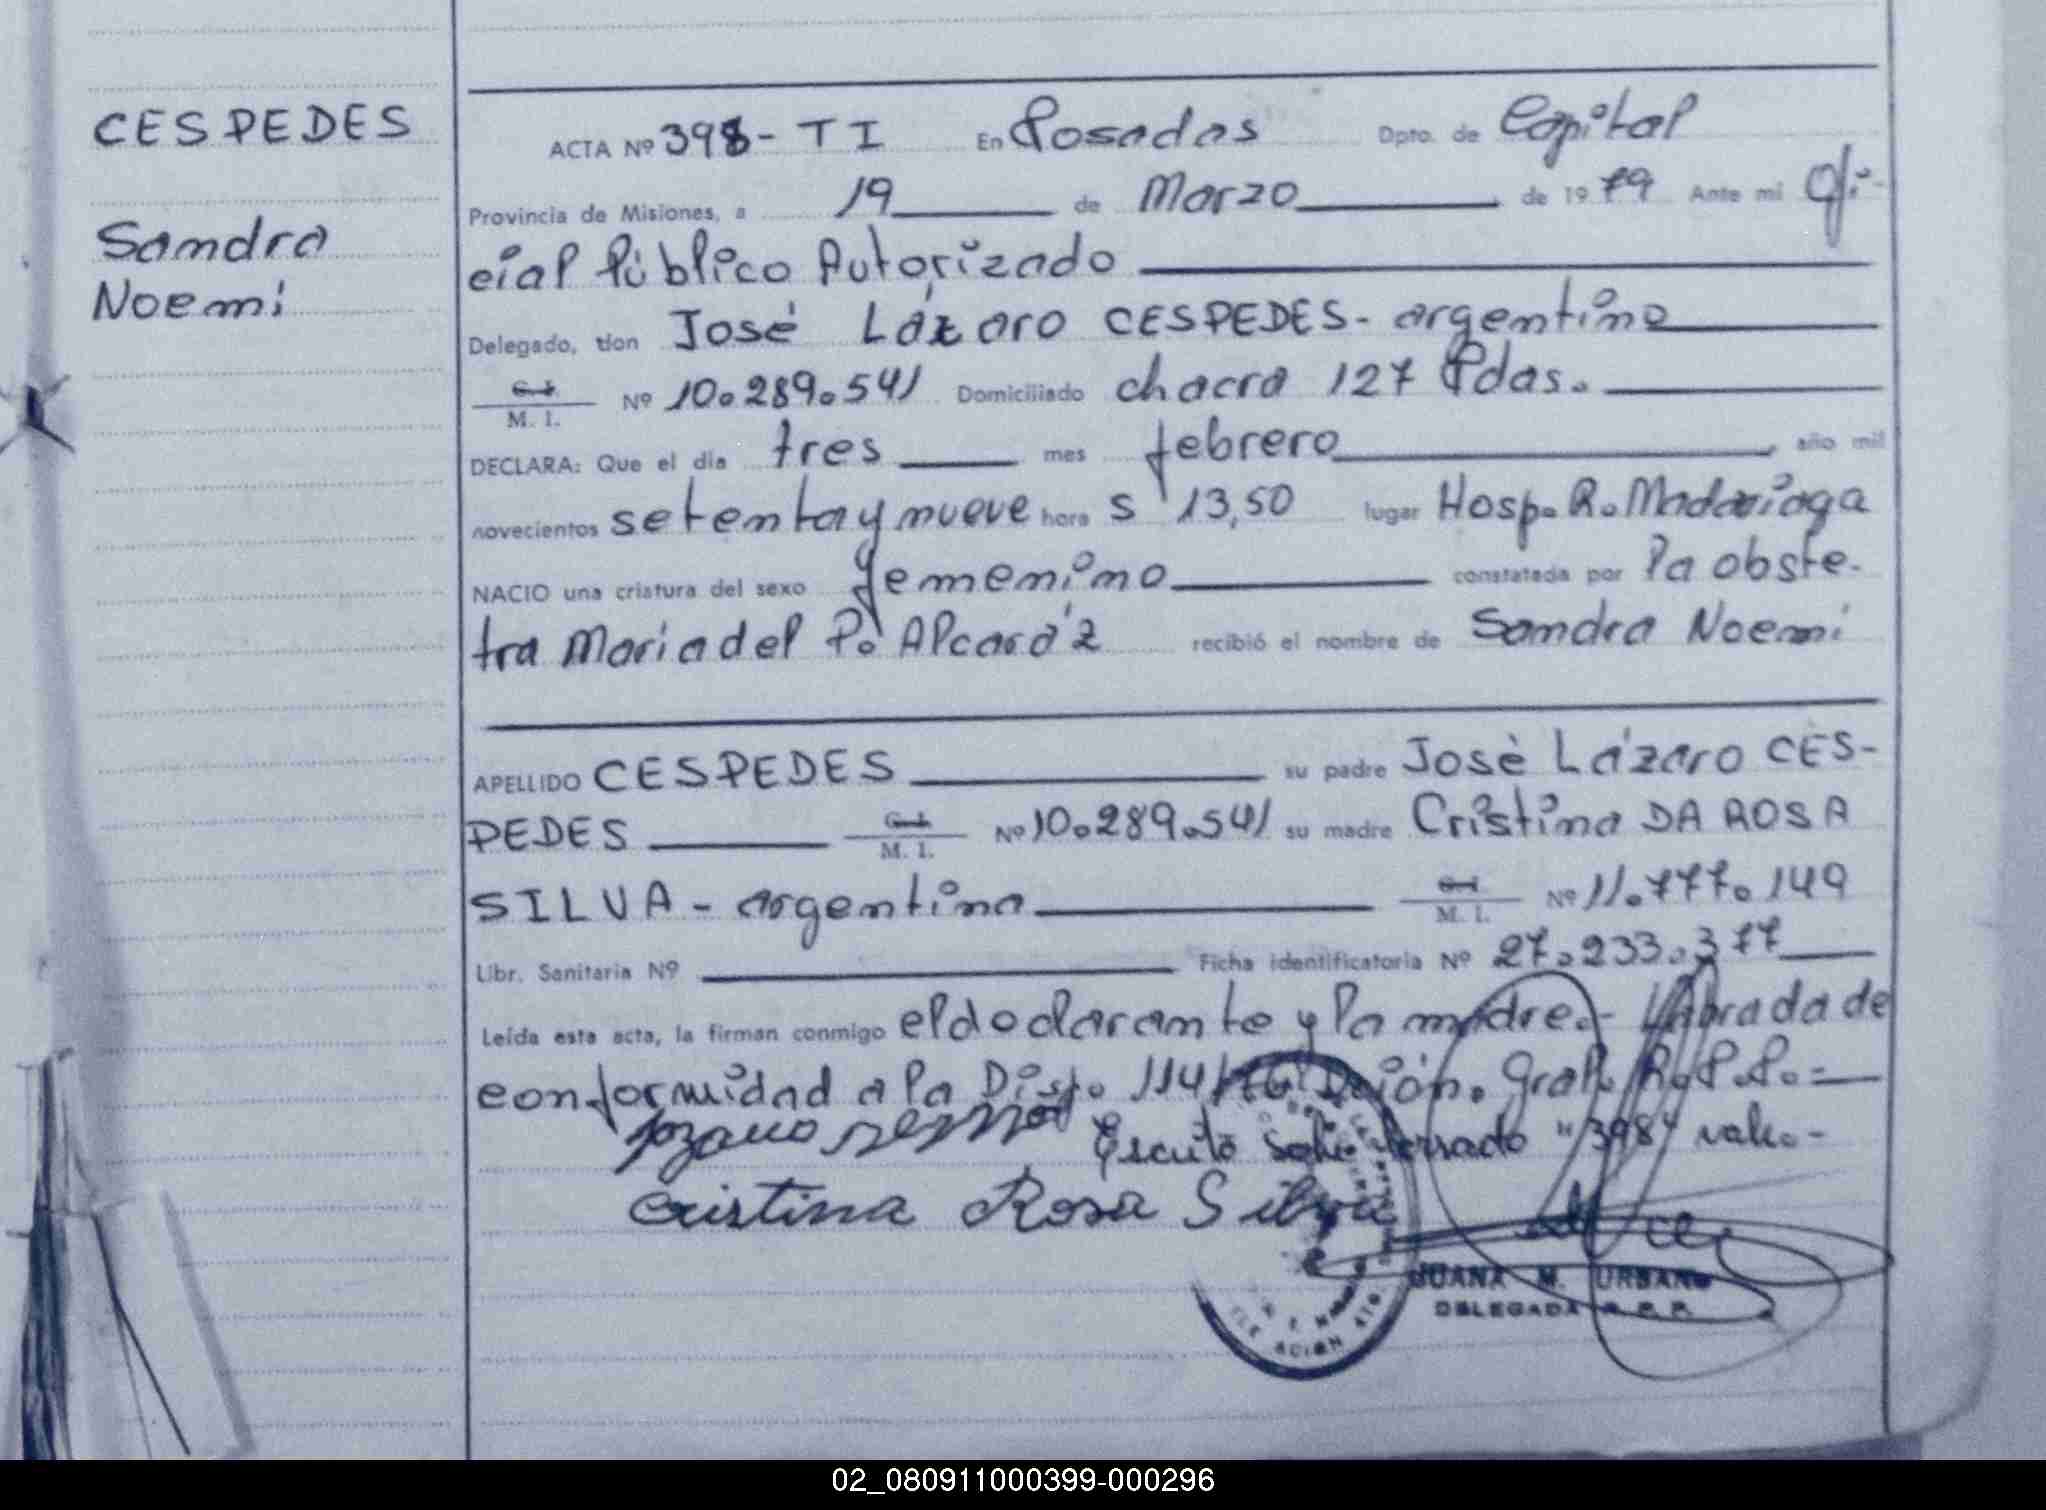 CESPEDES
Sandra
Noemi
ACTA Nº 398 - T I En Posadas Dpto. de Capital
Provincia de Misiones, a 19 de Marzo de 1979 Ante mi Ofi-
cial Público Autorizado
Delegado, don José Lázaro CESPEDES - argentino
C. I.
M. I. Nº 10.289.541 Domiciliado chacra 127 Pdas.
DECLARA: Que el dia tres mes febrero año mil
novecientos setenta y nueve hora s 13,50 lugar Hosp. R. Madariaga
NACIO una criatura del sexo femenino constatada por la obste-
tra Maria del P. Alcaráz recibió el nombre de Sandra Noemi
APELLIDO CESPEDES su padre José Lázaro CES-
PEDES C. I. M. I. Nº 10.289.541 su madre Cristina DA ROSA
SILVA - argentina C. I. M. I. Nº 11.777.149
Libr. Sanitaria Nº Ficha identificatoria Nº 27.233.377
Leída esta acta, la firman conmigo el declarante y la madre.- Labrada de
conformidad a la Disp. 114/76 Dción. Gral. R.P.P.=
Escrito sobre borrado "398" vale.-
Cristina Rosa Silva
JUANA M. URBANO
DELEGADA R. P. P.
02_080911000399-000296